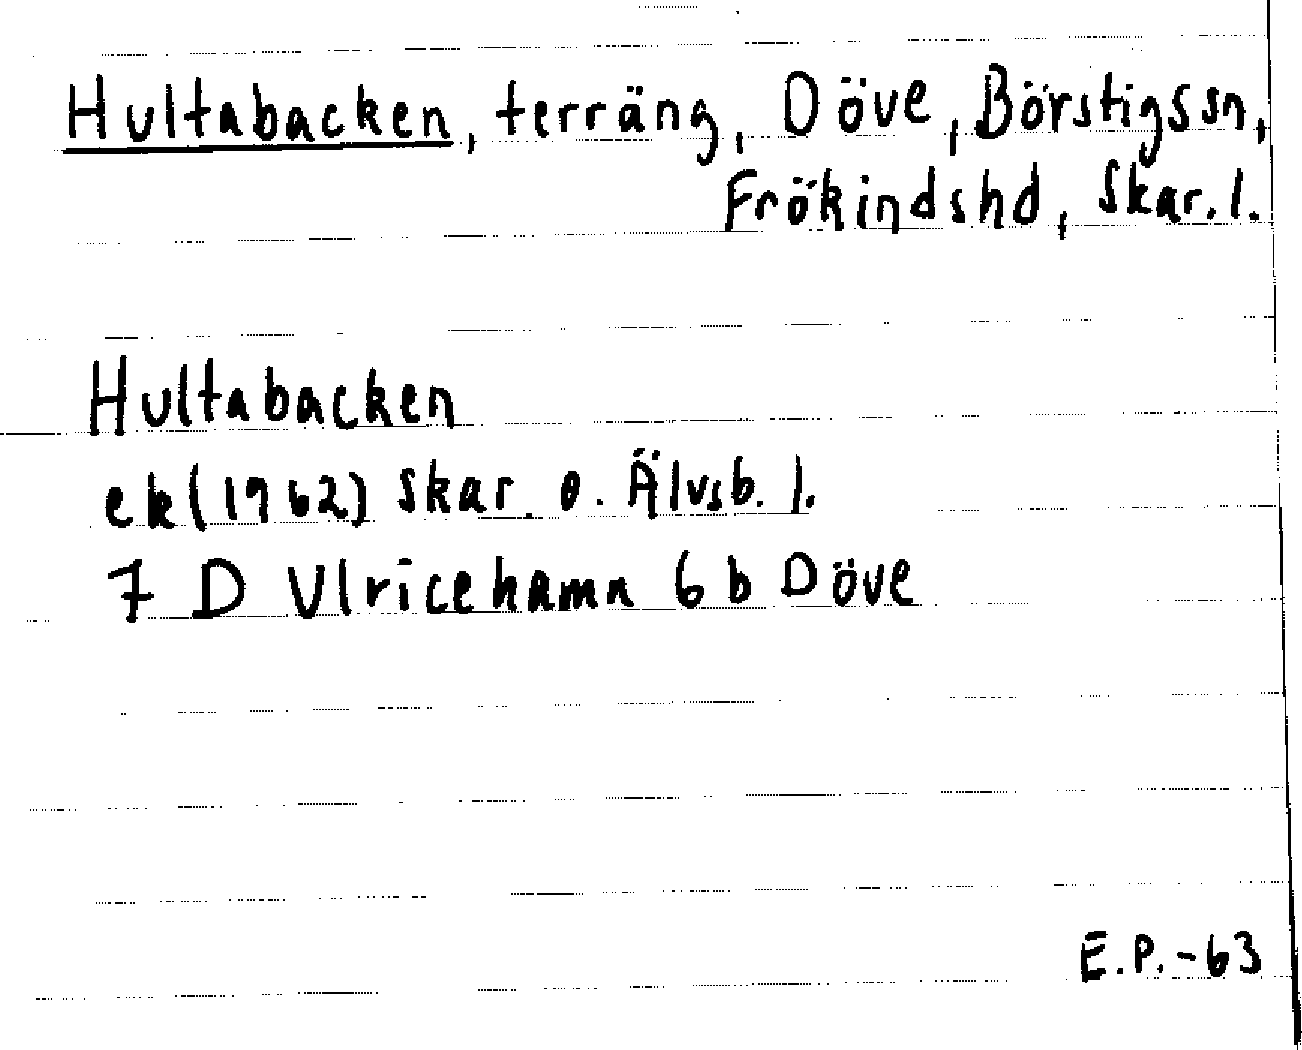 Hultabacken, terräng, Döve, Börstigs sn,
Frökinds hd, Skar. l.
Hultabacken
ek (1962) Skar. o. Älvsb. l.
7 D Ulricehamn 6 b Döve
E.P. -63